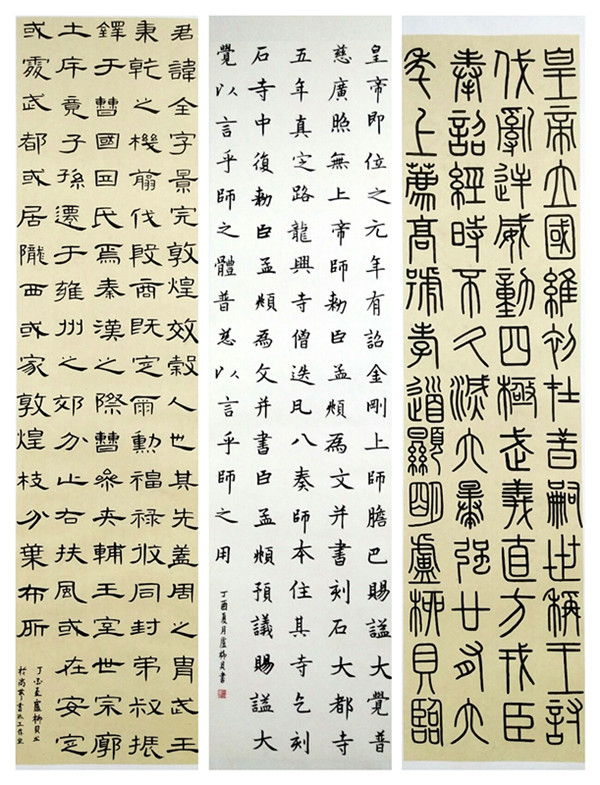 皇帝立國維初在昔嗣世稱王討
伐亂逆威動四極武義直方戎臣
奉詔經時不久滅六暴強廿有六
年上薦高號孝道顯明盧柳貝臨
皇帝即位之元年有詔金剛上師膽巴賜謚大覺普
慈廣照無上帝師勅臣孟頫為文并書刻石大都寺
五年真定路龍興寺僧迭凡八奏師本住其寺乞刻
石寺中復勅臣孟頫為文并書臣孟頫預議賜謚大
覺以言乎師之體普慈以言乎師之用
丁酉夏月盧柳貝書
君諱全字景完敦煌效穀人也其先蓋周之胄武王
秉乾之機翦伐殷商既定爾勳福祿攸同封弟叔振
鐸于曹國因氏焉秦漢之際曹參夾輔王室世宗廓
土斥竟子孫遷于雍州之郊分止右扶風或在安定
或處武都或居隴西或家敦煌枝分葉布所
丁酉夏盧柳貝書